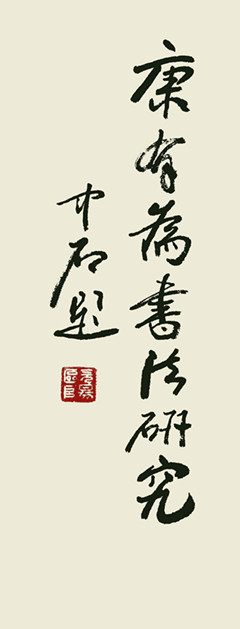 康有為書法研究
中石題